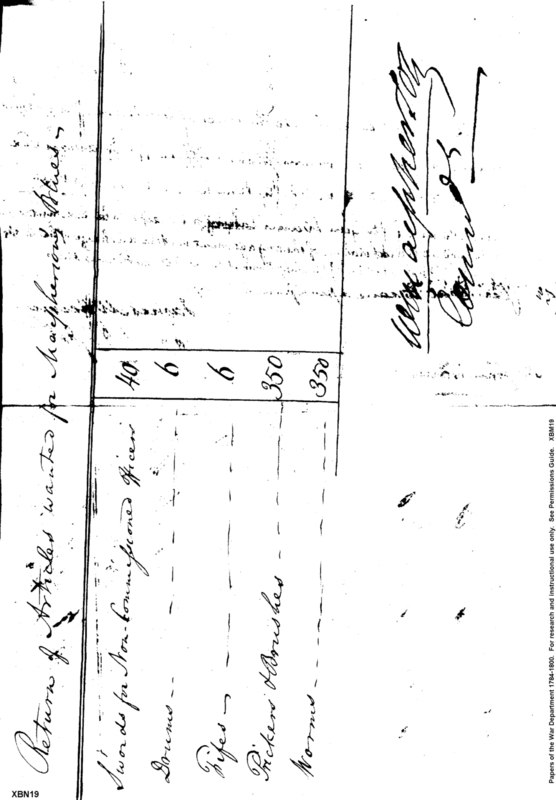 Return of Articles wanted for Macpherson's Blues
Swords for Non Commissioned Officers 40
Drums 6
Fifes 6
Prickers & Brushes 350
Worms 350
Wm Macpherson
Papers of the War Department 1784-1800. For research and instructional use only. See Permissions Guide. XBM19
XBN19